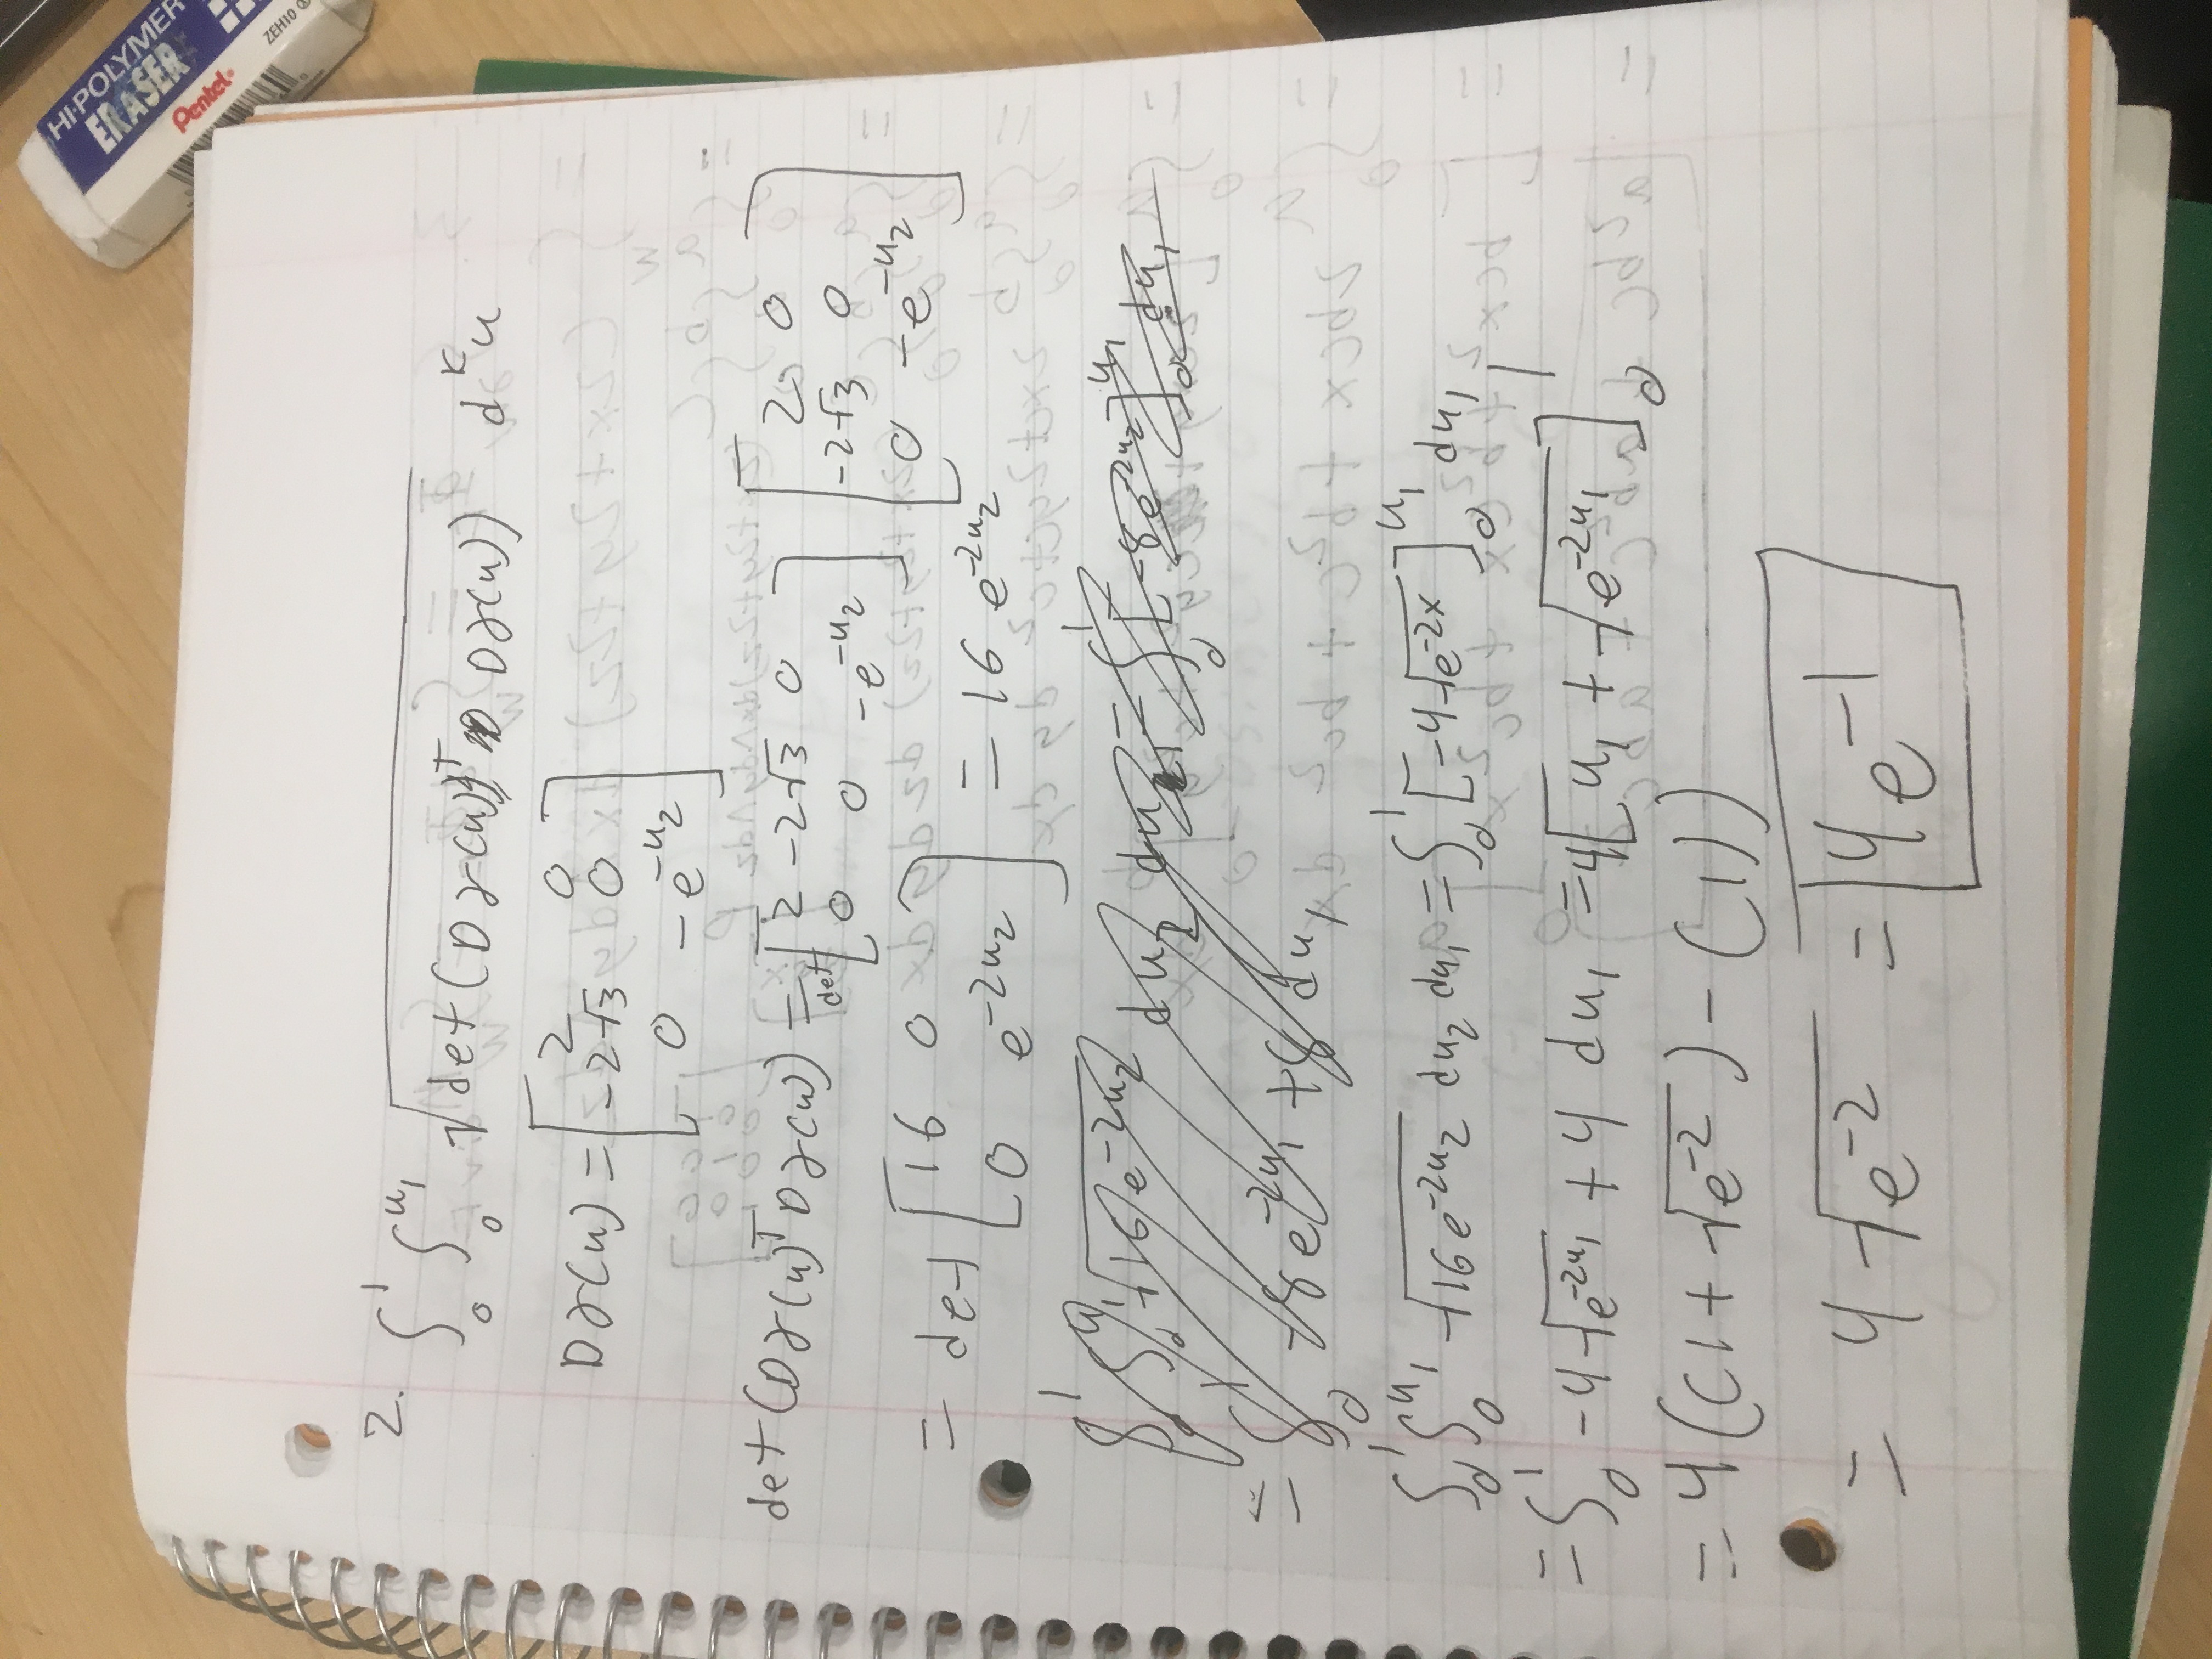 HI-POLYMER
ERASER
Pentel
ZEH10
2. ∫₀¹ ∫₀^{u₁} √(det(Dγ(u)ᵀ Dγ(u))) dᵏu
Dγ(u) = [2 0; -2√3 0; 0 -e^{-u₂}]
det(Dγ(u)ᵀDγ(u)) = det [2 -2√3 0; 0 0 -e^{-u₂}] [2 0; -2√3 0; 0 -e^{-u₂}]
= det [16 0; 0 e^{-2u₂}] = 16 e^{-2u₂}
∫₀¹ ∫₀^{u₁} √(16e^{-2u₂}) du₂ du₁ = ∫₀¹ [-8e^{-2u₂}]₀^{u₁} du₁
= ∫₀¹ -8e^{-2u₁} + 8 du₁
∫₀¹ ∫₀^{u₁} √(16e^{-2u₂}) du₂ du₁ = ∫₀¹ [-4√(e^{-2x})]₀^{u₁} du₁
= ∫₀¹ -4√(e^{-2u₁}) + 4 du₁ = 4[u₁ + √(e^{-2u₁})]₀¹
= 4((1 + √(e^{-2})) - (1))
= 4√(e^{-2}) = 4e^{-1}